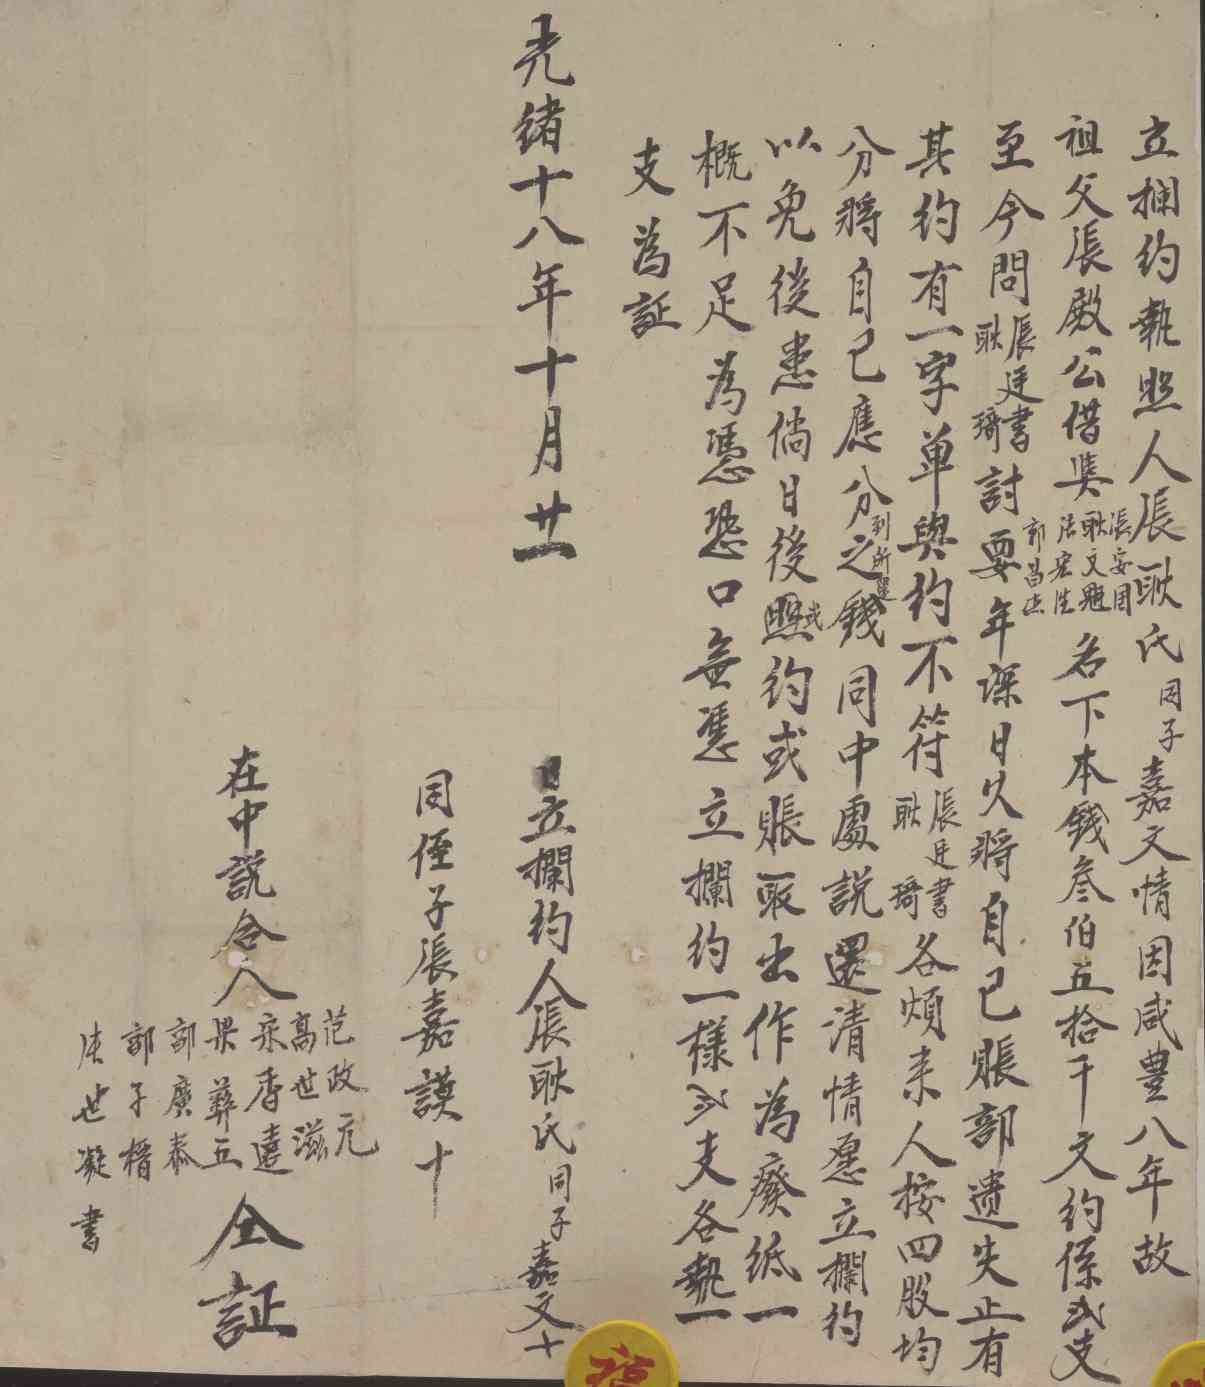 立攔約執照人張耿氏同子嘉文情因咸豐八年故
祖父張殿公借與張安国耿文題法宏生郭昌法名下本錢叁伯五拾千文約係弍支
至今問張廷書耿琦討要年深日久將自己賬部遗失止有
其約有一字单與約不符張廷書耿琦各煩来人按四股均
分將自己應分到所還之錢同中處説還清情愿立攔約
以免後患倘日後照弍約或賬取出作為廢纸一
概不足為憑恐口無憑立攔約一樣弍支各執一
支為証
光緒十八年十月廿一日立攔約人張耿氏同子嘉文十
同侄子張嘉謨十
在中説合人范政元高世滋宋香遠梁彝五郭廣泰郭子楷仝証
世凝書